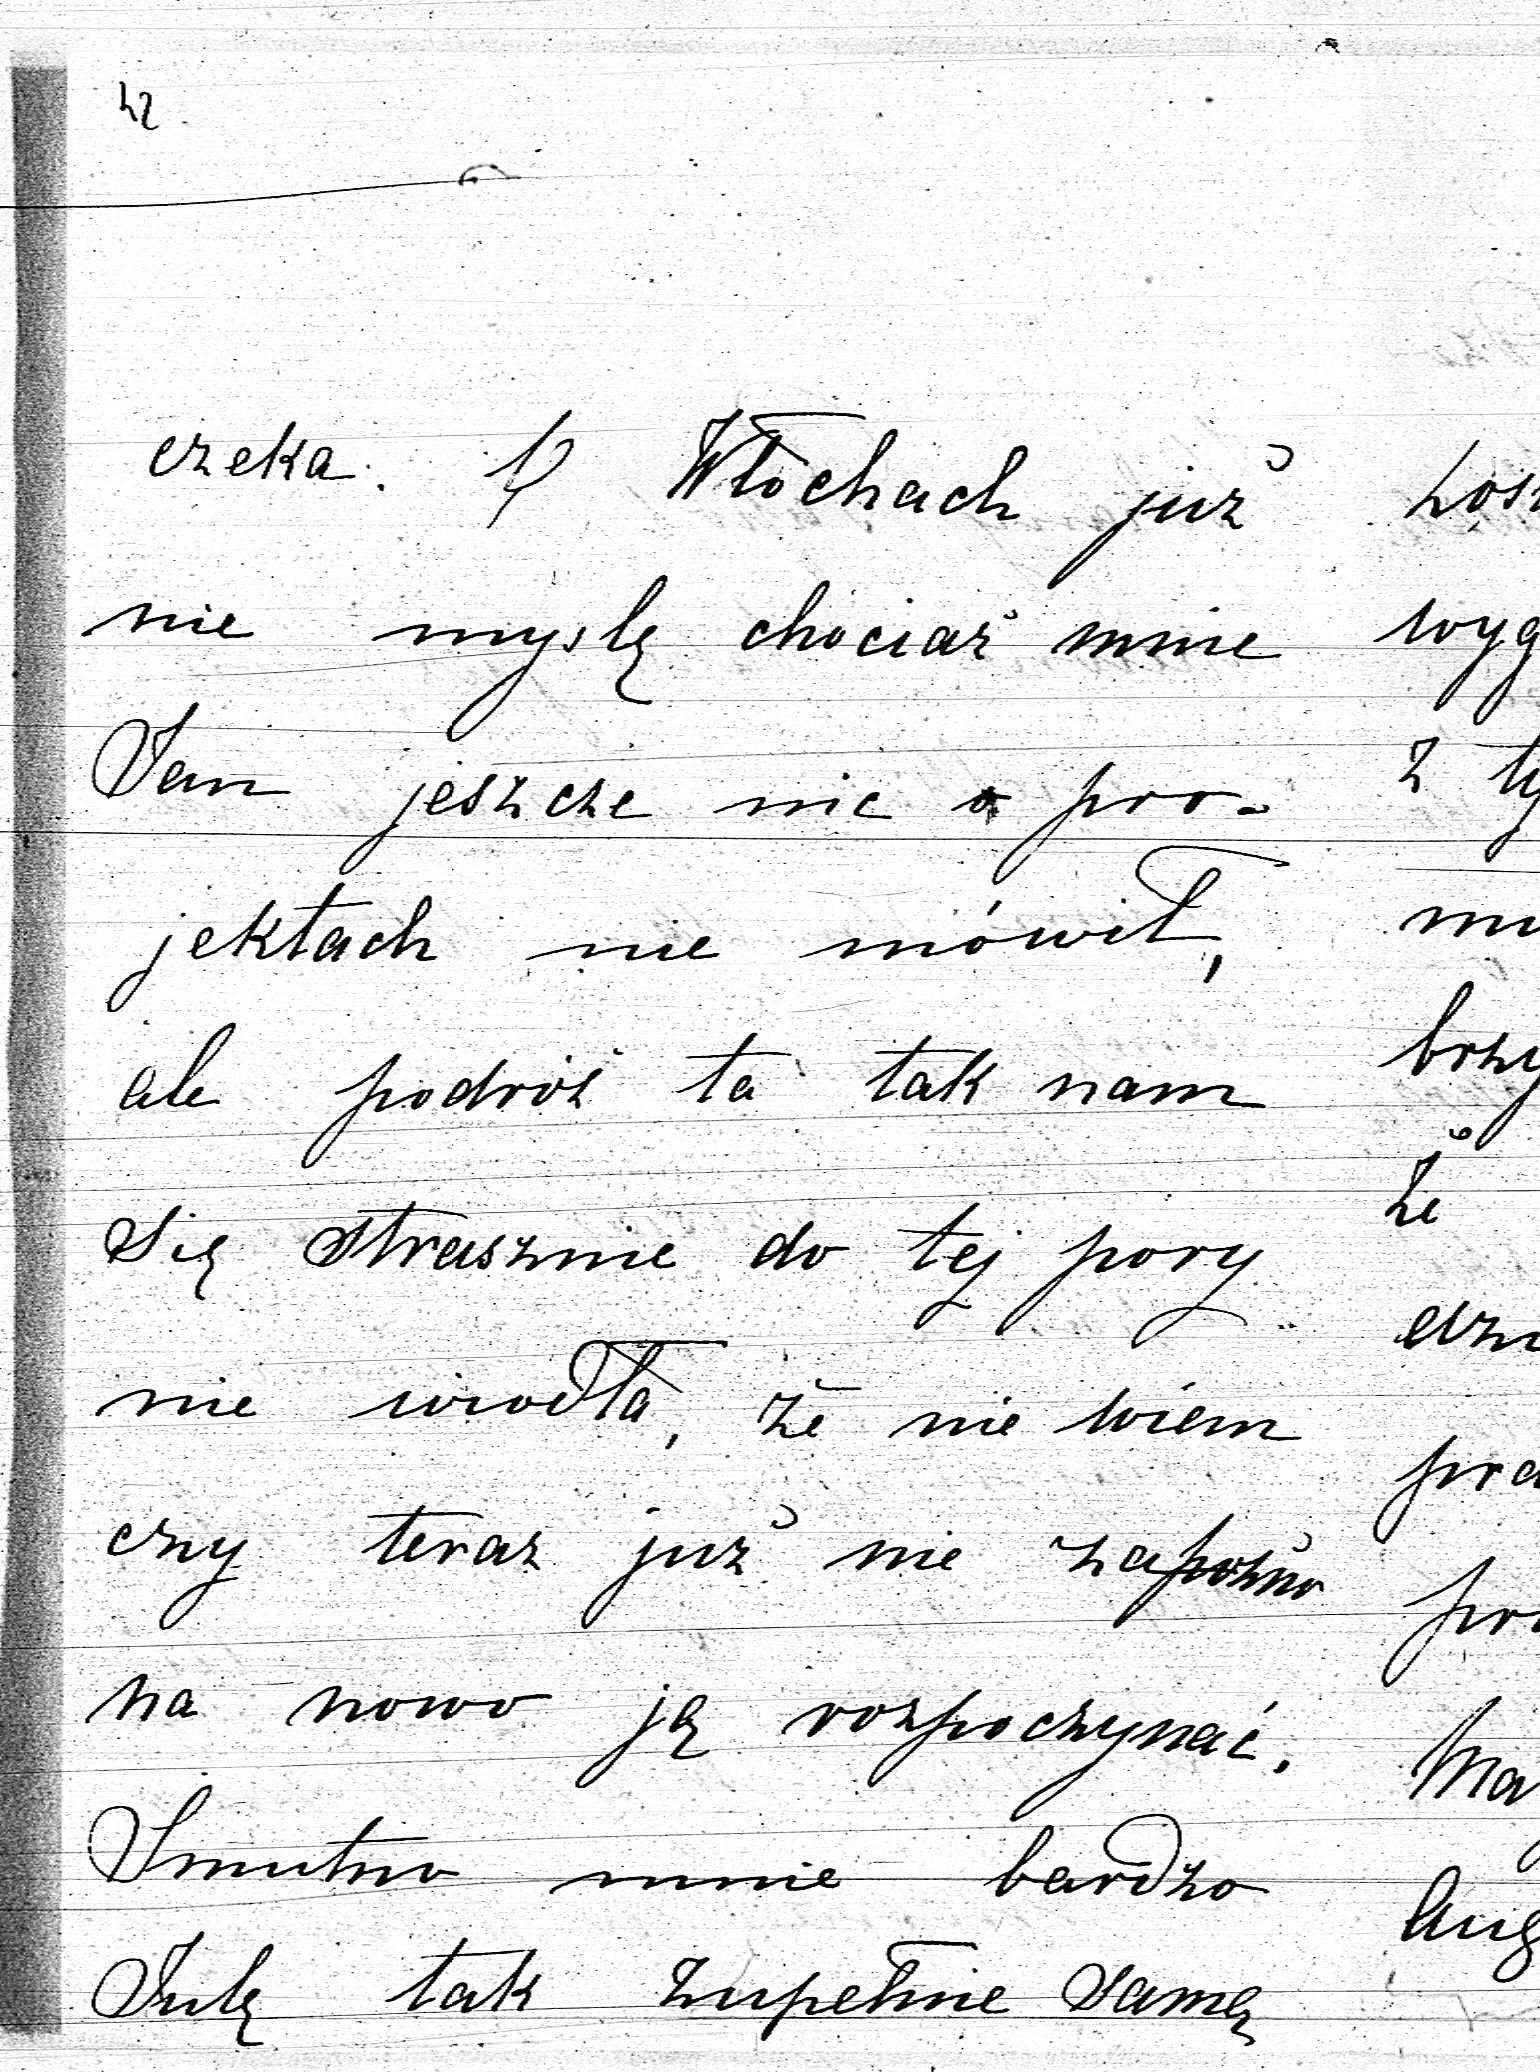 42
czeka. O Włochach już
nie myslę chociaż mnie
Jan jeszcze nic o pro-
jektach nie mówił,
ale podróż ta tak nam
się strasznie do tej pory
nie wiodła, że nie wiem
czy teraz już nie zapoźno
na nowo ją rozpoczynać.
Smutno mnie bardzo
Julę tak zupełnie samę
wyg
z ty
mu
brzy
że
pra
Ma
Aug